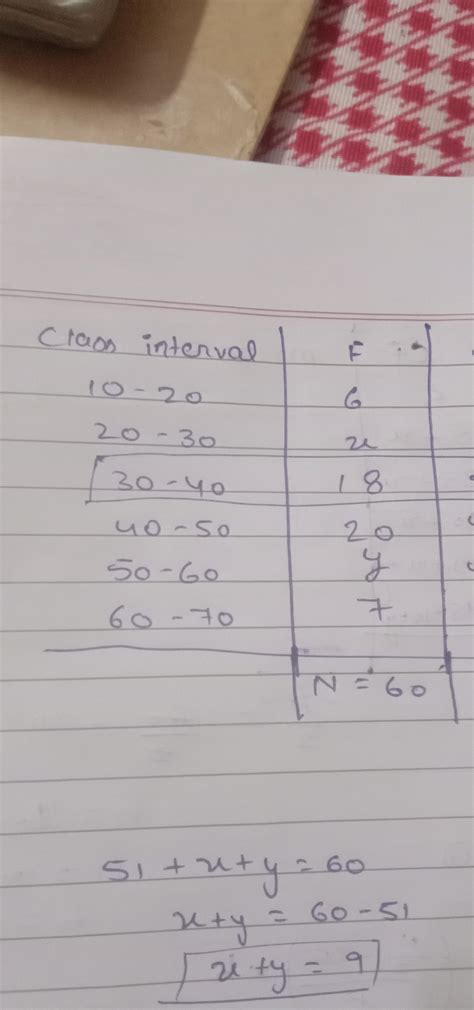 Class interval F
10 - 20 6
20 - 30 x
30 - 40 18
40 - 50 20
50 - 60 y
60 - 70 7
N = 60
51 + x + y = 60
x + y = 60 - 51
x + y = 9